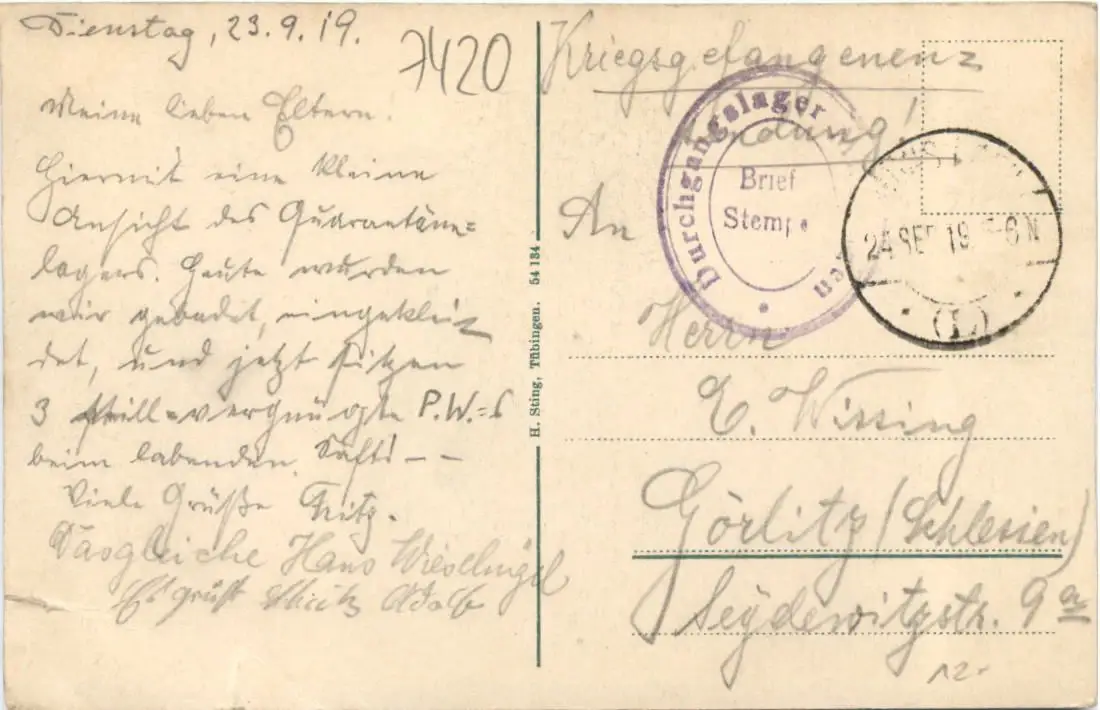 Dienstag, 23.9.19.
7420
Meine lieben Eltern!
Hiermit eine kleine
Ansicht des Quarantäne=
lagers. Heute wurden
wir gebadet, eingeklei=
det, und jetzt sitzen
3 still=vergnügte P.W.=s
beim labenden Saft! – –
Viele Grüße Fritz.
Dasgleiche Hans
Es grüßt Adolf
H. Sting, Tübingen. 54 134
Kriegsgefangenen=
sendung!
Durchgangslager
Brief
Stempe
en
24 SEP 19 5-6 N
(L)
An
Herrn
E. Wissing
Görlitz (Schlesien)
Seydewitzstr. 9a
12.-